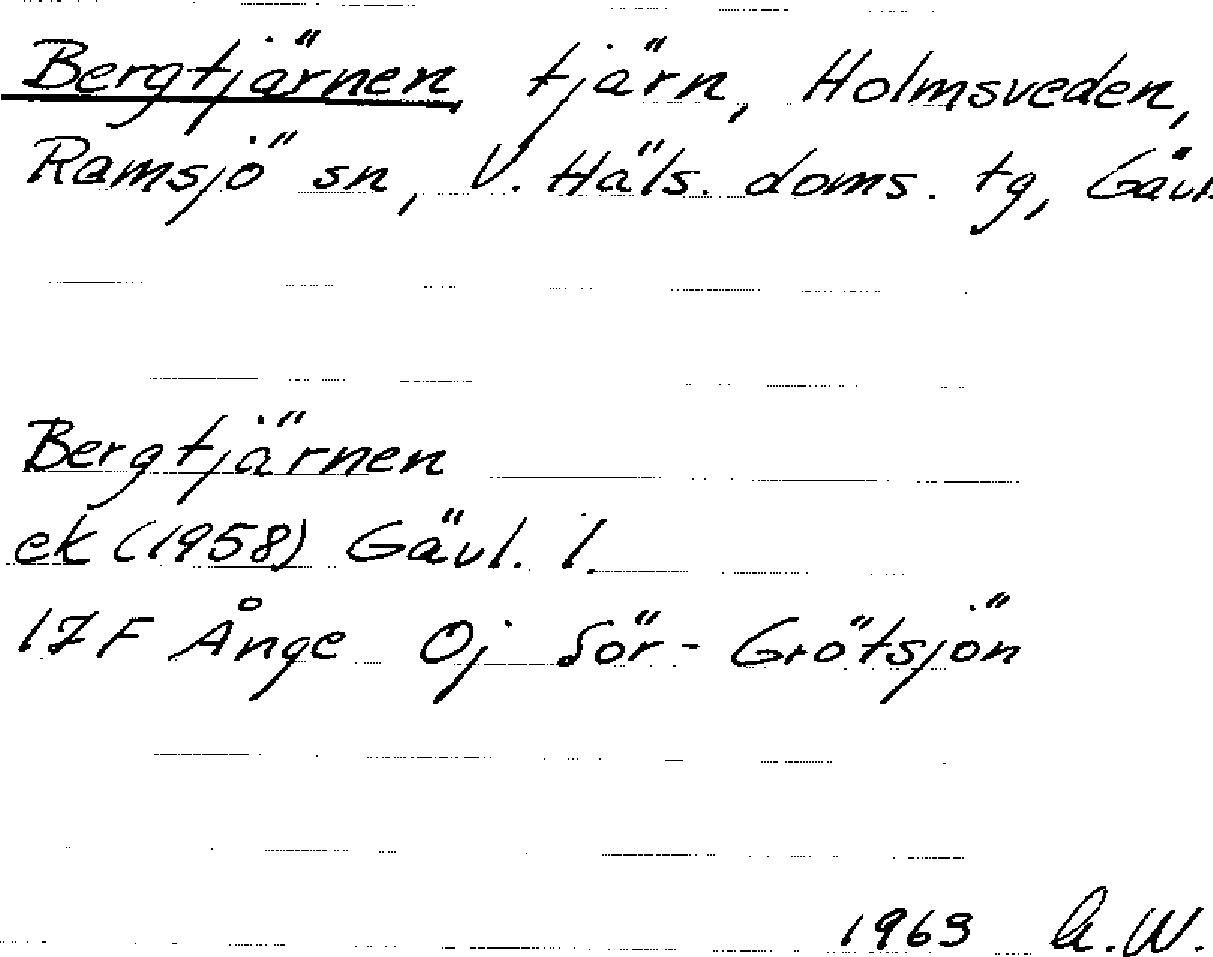 Bergtjärnen tjärn, Holmsveden,
Ramsjö sn, V. Häls. doms. tg, Gävl
Bergtjärnen
ek (1958) Gävl. l.
17F Ånge 0j Sör-Grötsjön
1963 A.W.